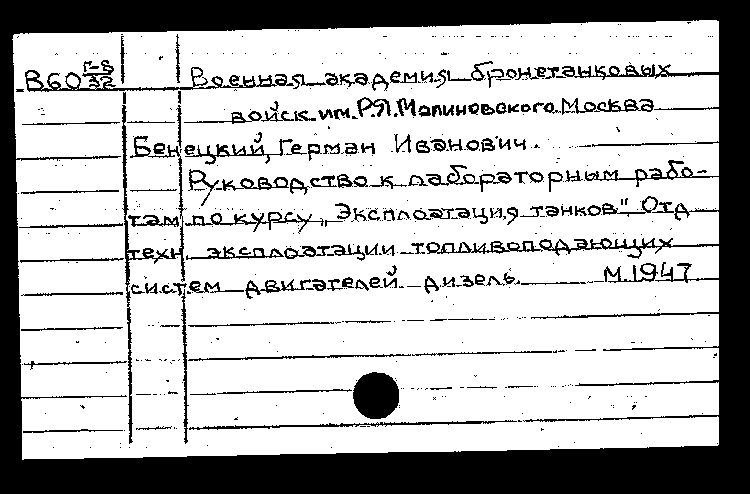 В60 Г-8/32 Военная академия бронетанковых
войск им. Р.Я. Малиновского. Москва
Бенецкий, Герман Иванович.
Руководство к лабораторным рабо-
там по курсу „Эксплоатация танков". Отд
техн. эксплоатации топливоподающих
систем двигателей дизель. М. 1947